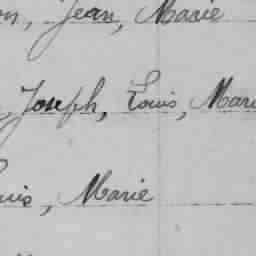 on, Jean, Marie
, Joseph, Louis, Mari
uis, Marie